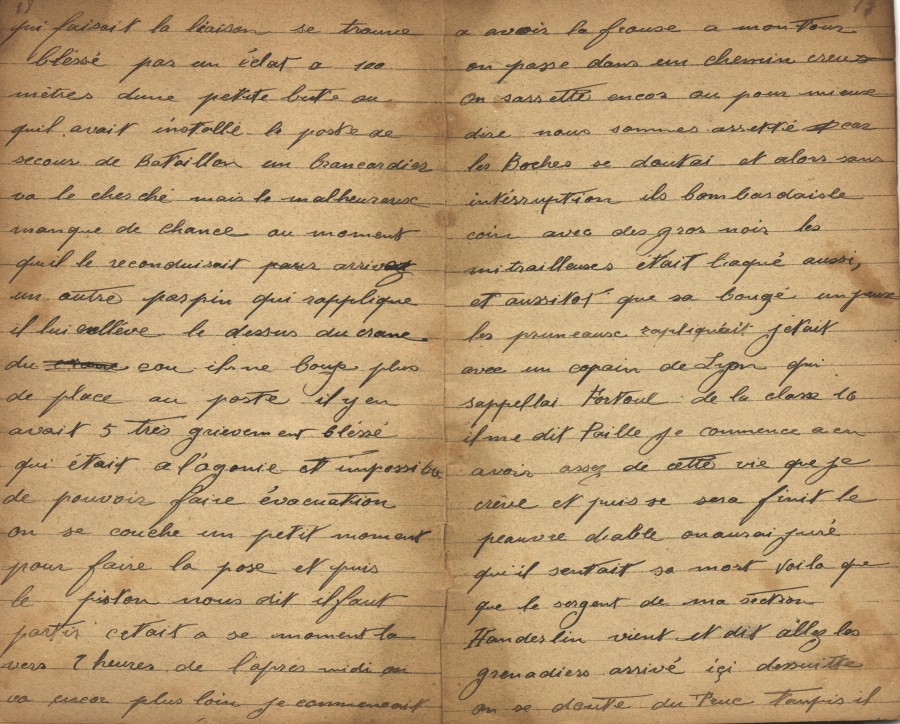 qui faisait la liaison se trouve
bléssé par un éclat a 100
mètres dune petite bute ou
quil avait installé le poste de
secour de Bataillon un brancardier
va le cherché mais le malheureux
manque de chance au moment
quil le reconduisait
un autre paspin qui rapplique
il lui enllève le dessus du crane
du cou il ne bouge plus
de place au poste il y en
avait 5 très grievement bléssé
qui était a l'agonie et impossible
de pouvoir faire évacuation
on se couche un petit moment
pour faire la pose et puis
le piston nous dit il faut
partir cetait a se moment la
vers 2 heures de l'apres midi on
va encor plus loin je commencait
17
a avoir la frousse a mon tour
on passe dans un chemin creux
on sarrette encor ou pour mieux
dire nous sommes arretté car
les Boches se doutai et alors sans
intérruption ils bombardais le
coin avec des gros noir les
mitrailleuses était braqué aussi,
et aussitot que sa bougé un peux
les pruneaux rapliquait jetait
avec un copain de Lyon qui
sappellai Fortoul de la classe 16
il me dit Paille je commence a en
avoir assez de cette vie que je
crève et puis se sera finit le
peauvre diable on aurai juré
qu'il sentait sa mort voila que
que le sergent de ma section
Handerlin vient et dit allez les
grenadiers arrivé içi dessuitte
on se doute du Truc tempis il